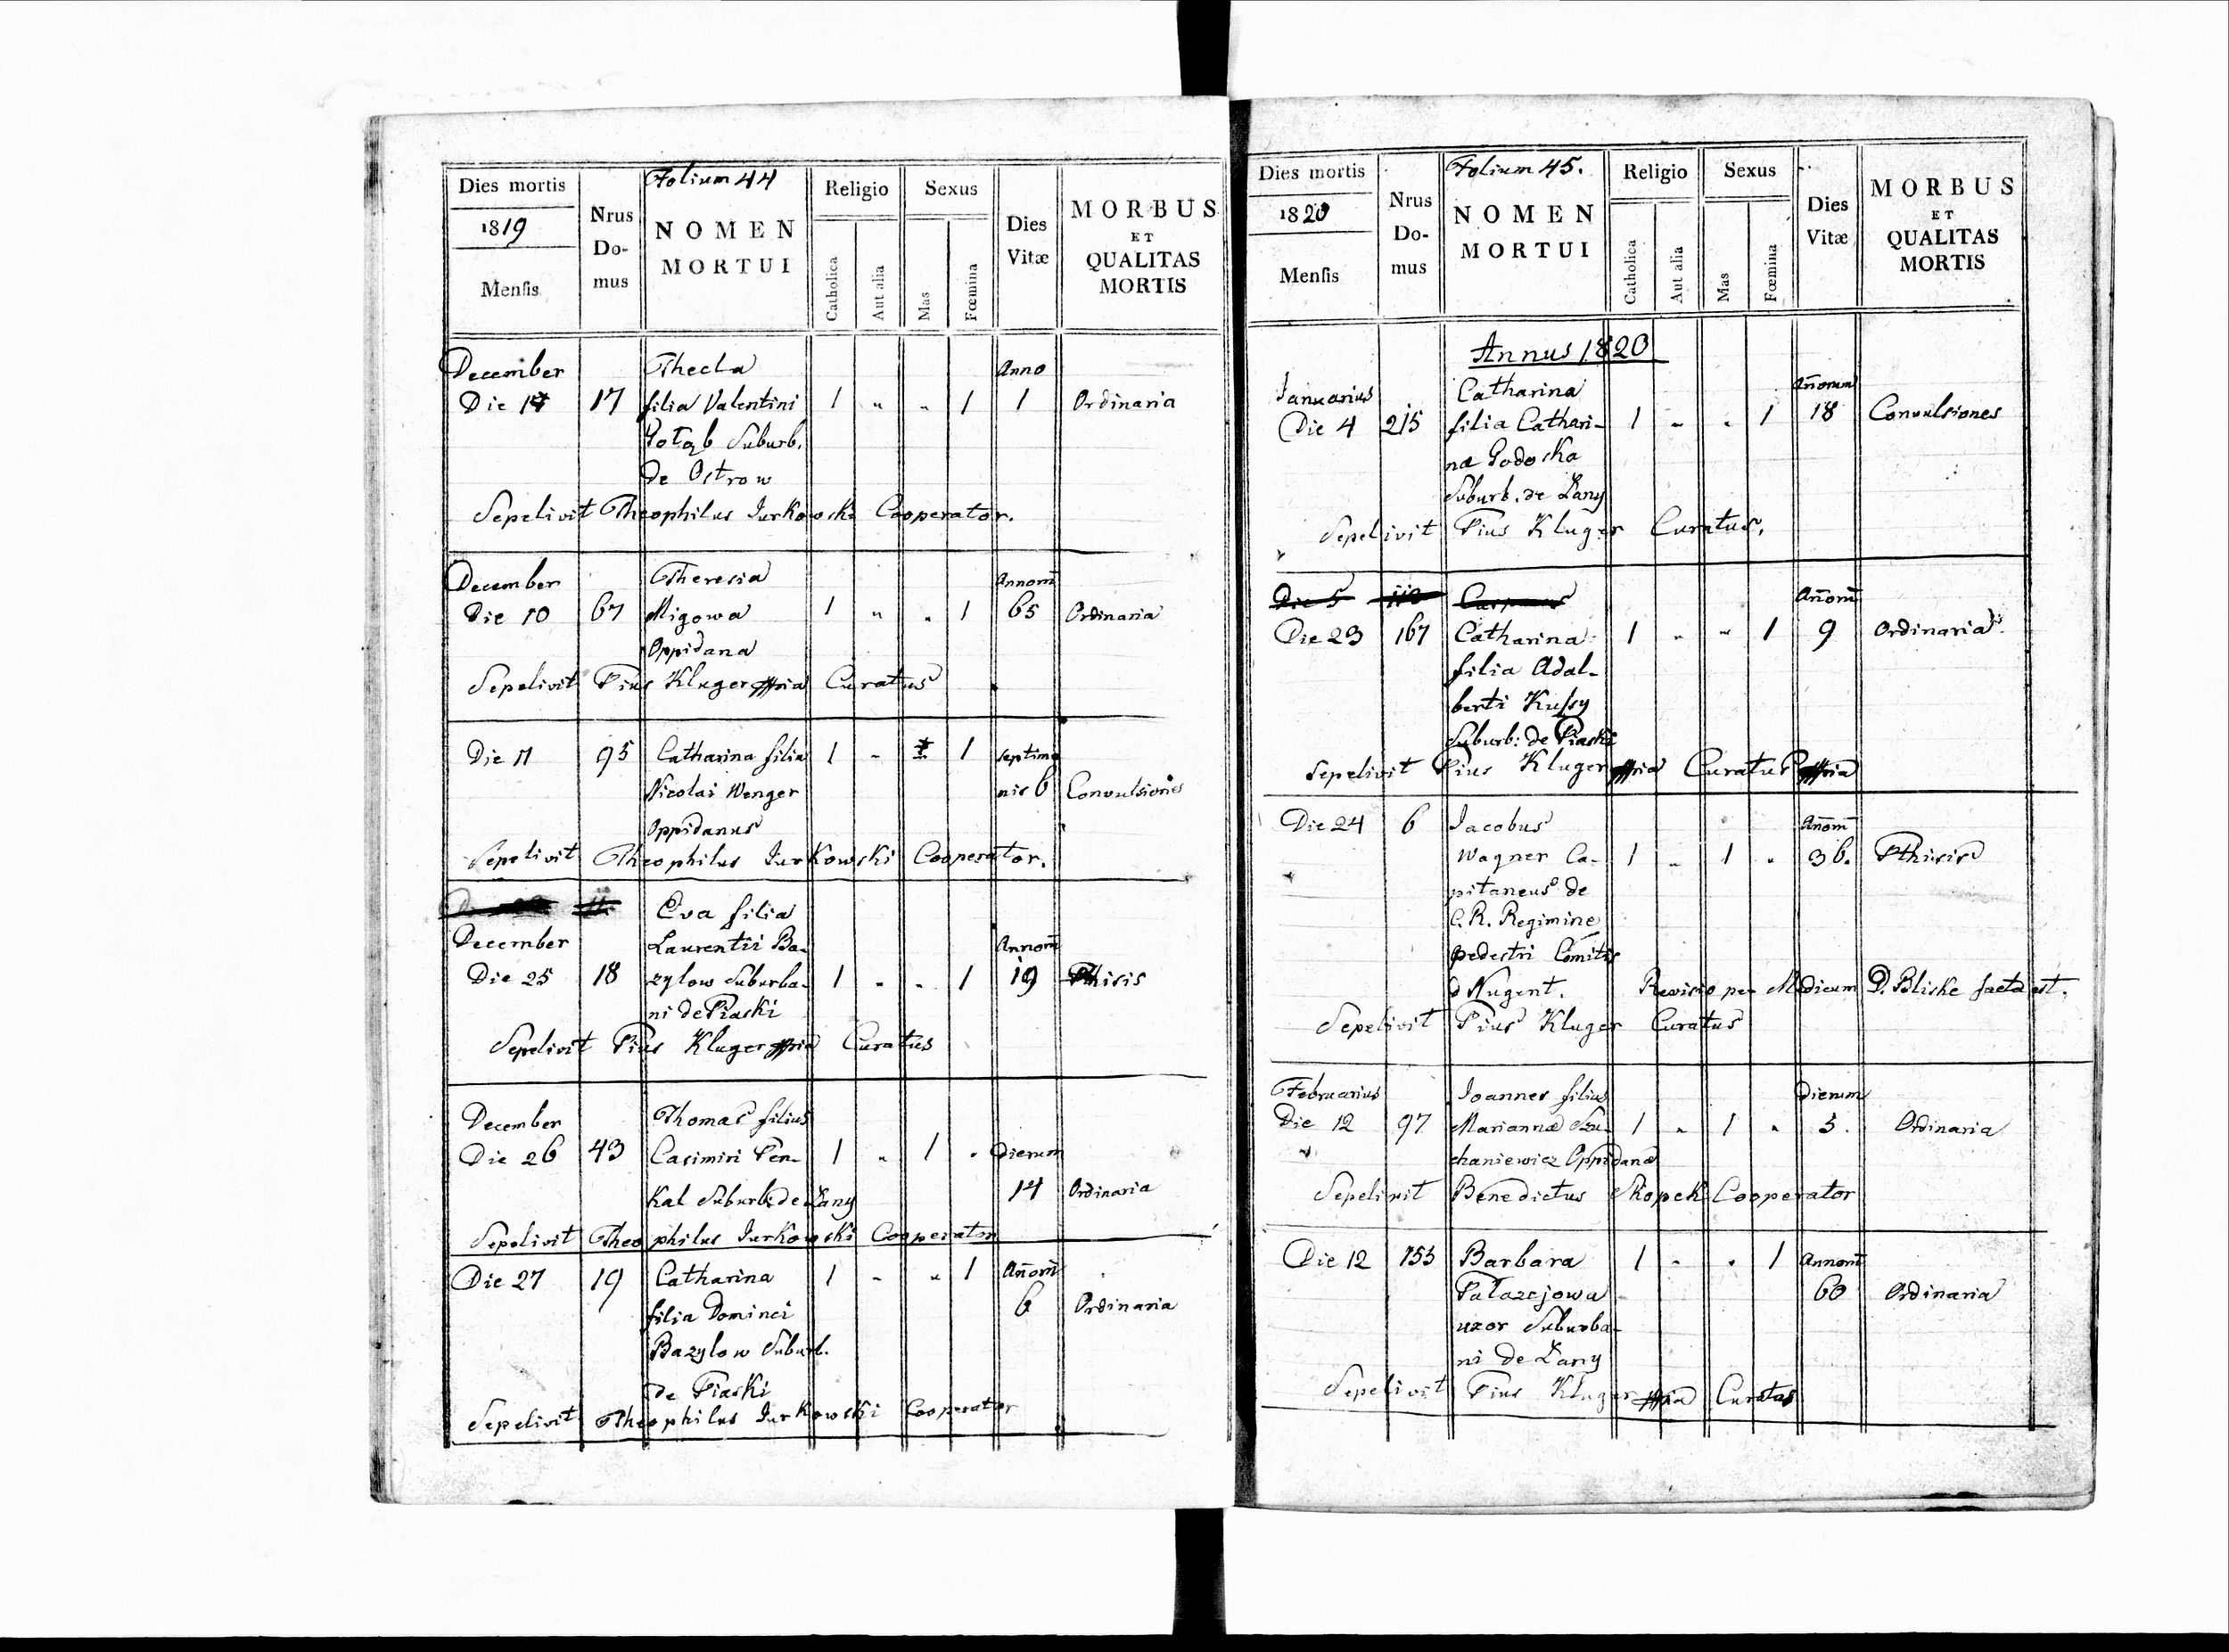 Folium 44
Dies mortis 1819 Mensis
Nrus Domus
NOMEN MORTUI
Religio Catholica Aut alia
Sexus Mas Fœmina
Dies Vitæ
MORBUS ET QUALITAS MORTIS
December Thecla Anno
Die 17 filia Valentini 1 " " 1 1 Ordinaria
Gołąb Suburb.
de Ostrow
Sepelivit Theophilus Jurkowski Cooperator.
December Theresia Annorū
Die 10 67 Migowa 1 " " 1 65 Ordinaria
Oppidana
Sepelivit Pius Kluger mpria Curatus
Die 11 95 Catharina filia 1 " 1 septima
Nicolai Wenger nis 6 Convulsiones
Oppidanus
Sepelivit Theophilus Jurkowski Cooperator.
Eva filia
December Laurentii Ba- Annorū
Die 25 18 zylow Suburba- 1 " " 1 19 Phisis
ni de Piaski
Sepelivit Pius Kluger mpria Curatus
December Thomas filius
Die 26 43 Casimiri Pen- 1 " 1 " Dierum
kal Suburb: de Łany 14 Ordinaria
Sepelivit Theophilus Jurkowski Cooperator
Die 27 19 Catharina 1 " " 1 Añorū
filia Dominci 6 Ordinaria
Bazylow Suburb.
de Piaski
Sepelivit Theophilus Jurkowski Cooperator
Folium 45.
Dies mortis 1820 Mensis
Nrus Domus
NOMEN MORTUI
Religio Catholica Aut alia
Sexus Mas Fœmina
Dies Vitæ
MORBUS ET QUALITAS MORTIS
Annus 1820
Januarius Catharina Añorum
Die 4 215 filia Cathari- 1 " " 1 18 Convulsiones
næ Godoska
Suburb. de Łany
Sepelivit Pius Kluger Curatus.
Die 5 Añorū
Die 23 167 Catharina 1 " " 1 9 Ordinaria
filia Adal-
berti Kussy
Suburb: de Piaski
Sepelivit Pius Kluger mpria Curatus mpria
Die 24 6 Jacobus Añorū
Wagner Ca- 1 " 1 " 36. Pthisis
pitaneus de
C. R. Regimine
pedestri Comitis
d Nugent. Revisio per Medicum D. Bliske facta est.
Sepelivit Pius Kluger Curatus
Februarius Joannes filius Dierum
Die 12 97 Mariannæ Su- 1 " 1 " 5. Ordinaria
chaniewicz Oppidanæ
Sepelivit Benedictus Skopek Cooperator
Die 12 155 Barbara 1 " " 1 Annorū
Pałazejowa 60 Ordinaria
uxor Suburba-
ni de Łany
Sepelivit Pius Kluger mpria Curatus